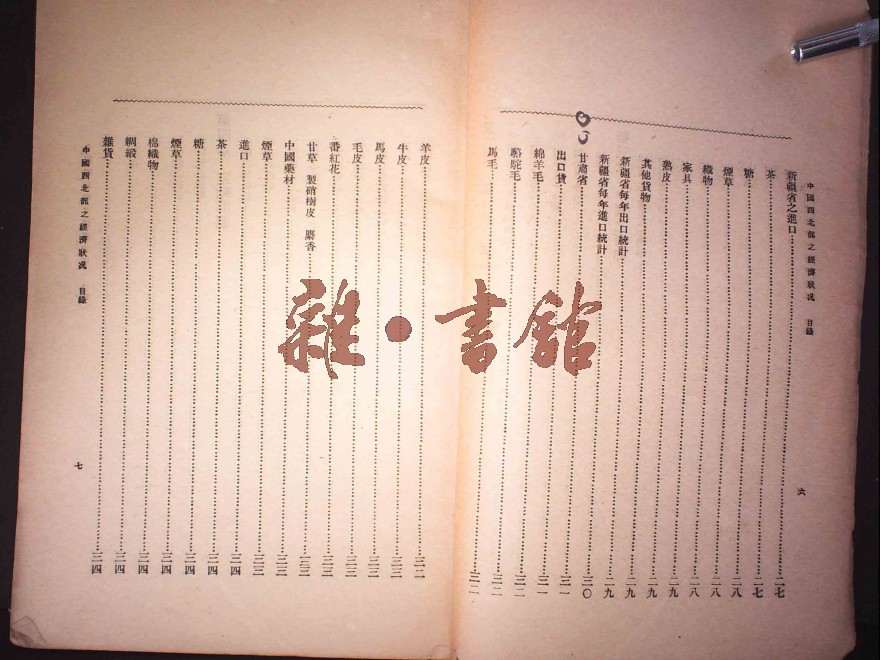 中國西北部之經濟狀况 目錄
新疆省之進口……二七
茶……二七
糖……二七
煙草……二八
織物……二八
家具……二八
熟皮……二九
其他貨物……二九
新疆省每年出口統計……二九
新疆省每年進口統計……二九
甘肅省……三〇
出口貨……三一
綿羊毛……三一
駱駝毛……三二
馬毛……三二
六
羊皮……三二
牛皮……三三
馬皮……三三
毛皮……三三
番紅花……三三
甘草 製硝樹皮 麝香……三三
中國藥材……三三
煙草……三三
進口……三四
茶……三四
糖……三四
煙草……三四
棉織物……三四
綢緞……三四
雜貨……三四
中國西北部之經濟狀况 目錄
七
雜·書館